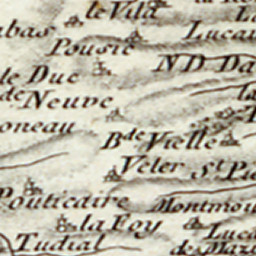 le Vild
Lucau
Pousie
ND Da
le Duc
de Neuve
oneau
Bde Vielle
Veler St Pie
Pouticaire
Montmou
la Foy
Luca
Tudial